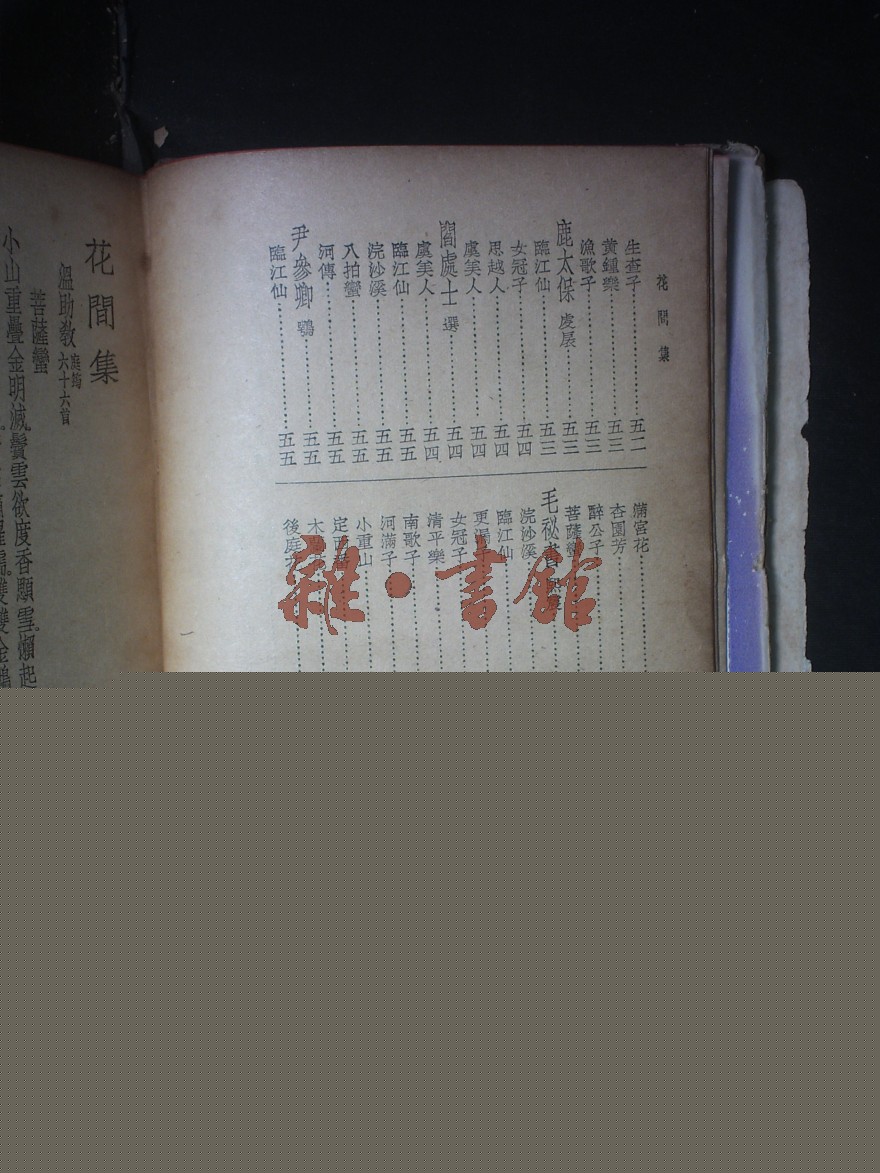 花間集
生查子……五二
黃鍾樂……五三
漁歌子……五三
鹿太保 虔扆……五三
臨江仙……五三
女冠子……五四
思越人……五四
虞美人……五四
閻處士 選……五四
虞美人……五四
臨江仙……五五
浣沙溪……五五
八拍蠻……五五
河傳……五五
尹參卿 鶚……五五
臨江仙……五五
滿宮花……
杏園芳……
醉公子……
菩薩蠻……
毛祕書
浣沙溪……
臨江仙……
更漏子……
女冠子……
清平樂……
南歌子……
河滿子……
小重山……
定西番……
木
後庭
一
花間集
溫助教 庭筠 六十六首
菩薩蠻
小山重疊金明滅。鬢雲欲度香顋雪。懶起
雜·書館